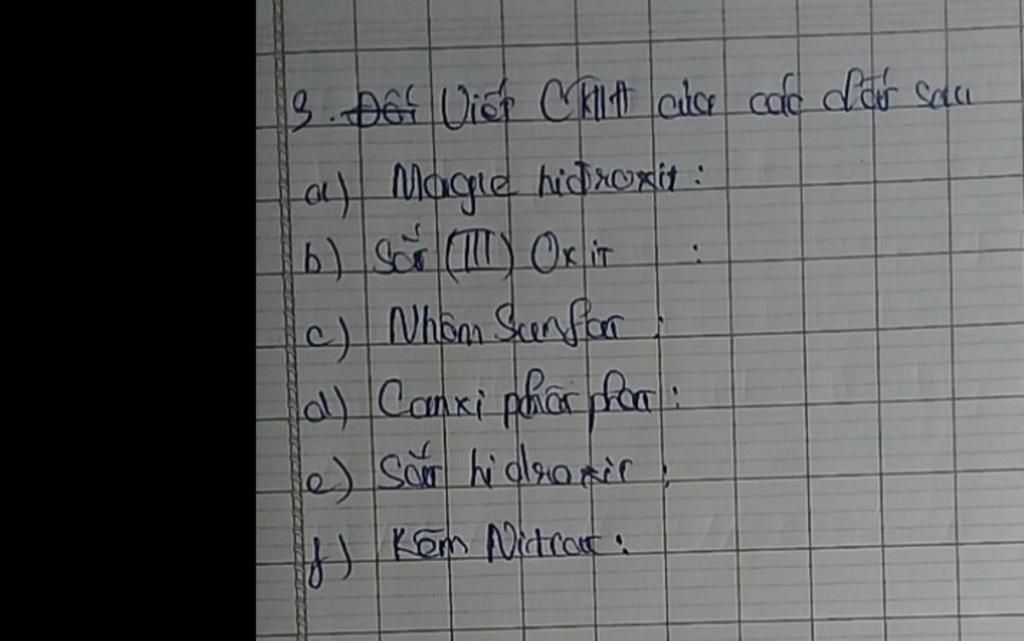 3. Viết CTHH của các chất sau
a) Magie hidroxit:
b) Sắt (III) Oxit :
c) Nhôm Sunfat :
d) Canxi phốt phat :
e) Sắt hidroxit :
f) Kẽm Nitrat :